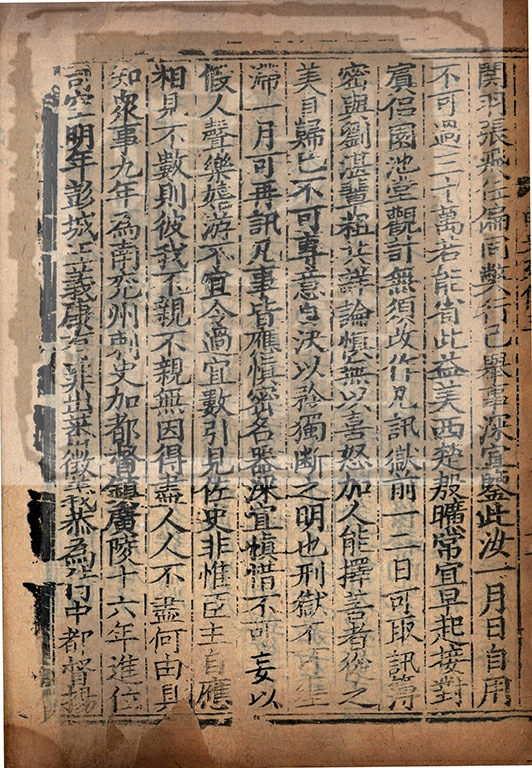 關羽張飛任偏同弊行已舉事深宜鑒此汝一月日自用
不可過三十萬若能省此益美西楚殷曠常宜早起接對
賓侶園池堂觀計無須改作凡訊獄前一二日可取訊簿
密與劉湛輩粗共詳論慎無以喜怒加人能擇善者從之
美自歸己不可專意自決以矜獨斷之明也刑獄不可壅
滯一月可再訊凡事皆應慎密名器深宜慎惜不可妄以
假人聲樂嬉游不宜令過宜數引見佐史非惟臣主自應
相見不數則彼我不親不親無因得盡人人不盡何由具
知衆事九年為南兗州刺史加都督鎮廣陵十六年進位
司空明年彭城王義康有罪出蕃徵義恭為侍中都督揚